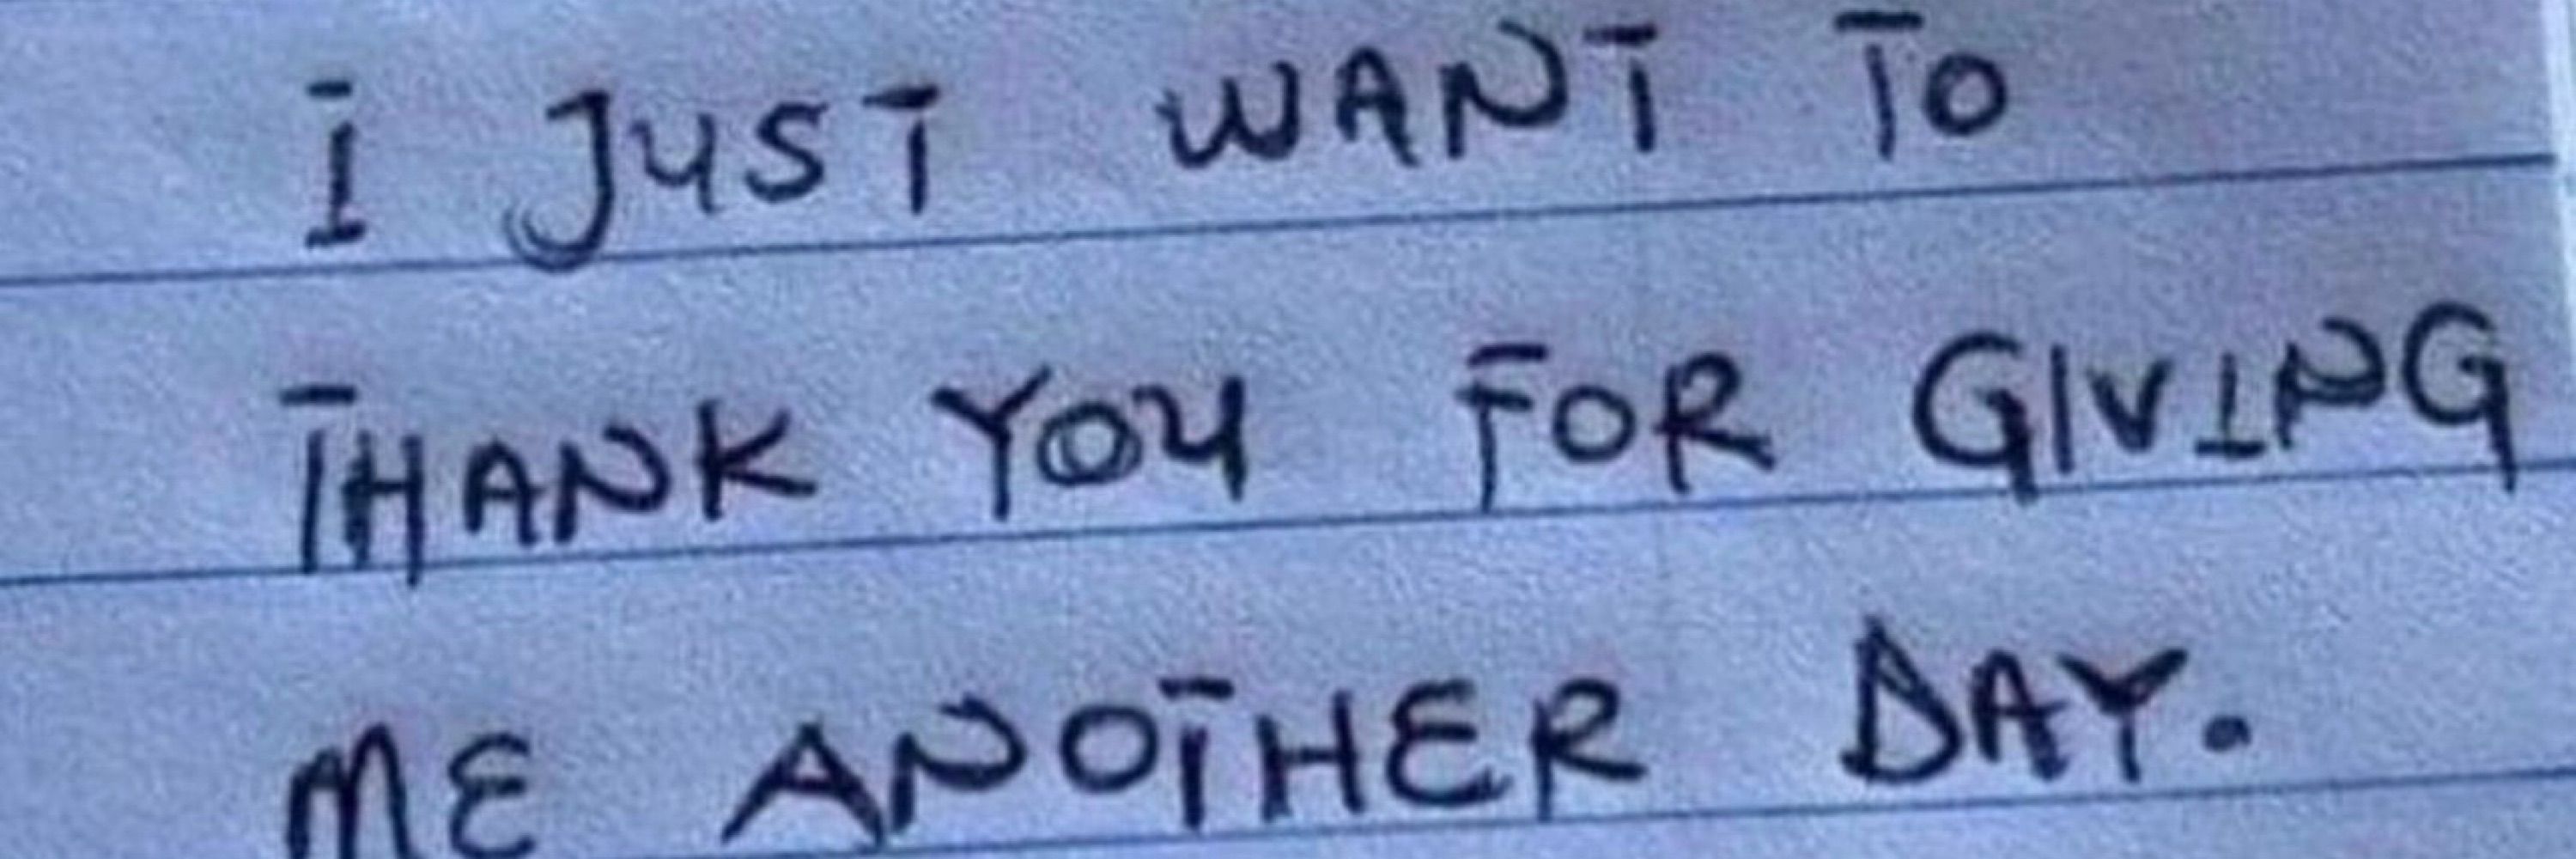 I JUST WANT TO
THANK YOU FOR GIVING
ME ANOTHER DAY.